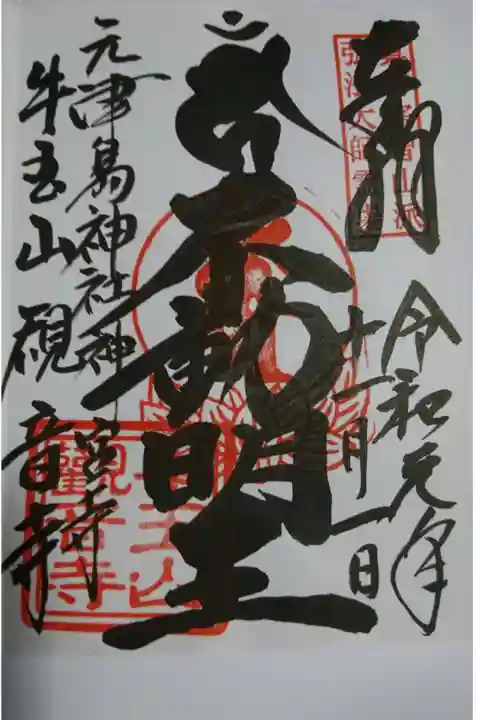 奉拝
令和元年
十一月一日
不動明王
元津島神社神宮寺
牛玉山観音寺
弘法大師霊場
牛玉山
觀音寺